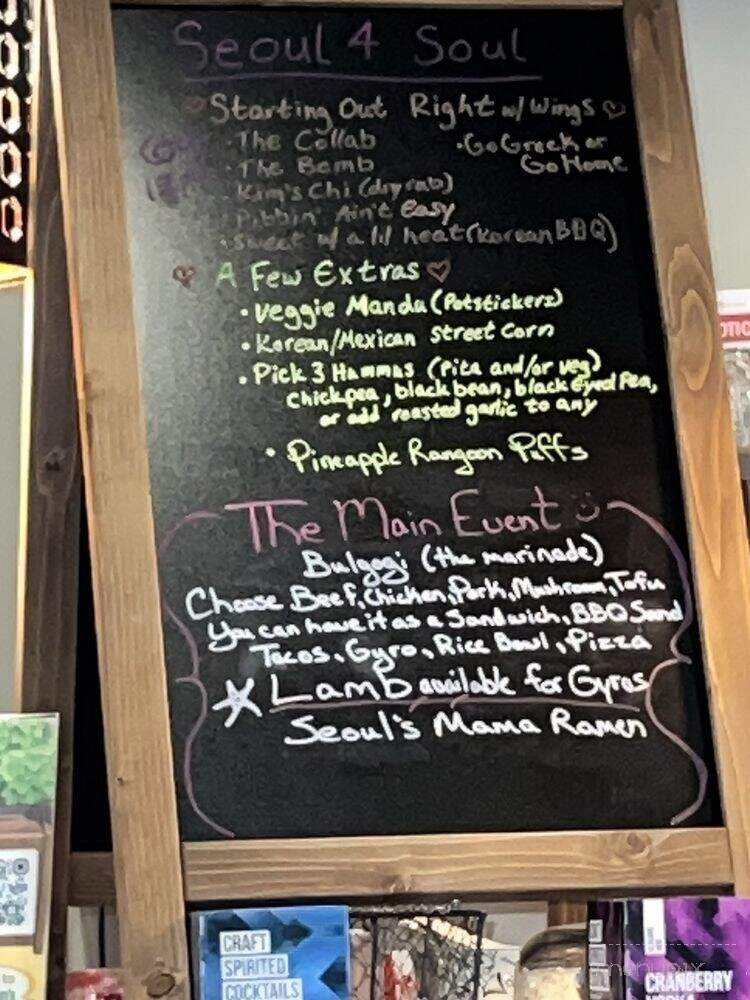 Seoul 4 Soul
Starting Out Right w/ Wings
• The Collab
• Go Greek or
Go Home
• The Bomb
• Kim's Chi (dry rub)
• Pibbin' Ain't Easy
• Sweet w/ a lil heat (Korean BBQ)
A Few Extras
• Veggie Mandu (Potstickers)
• Korean/Mexican Street Corn
• Pick 3 Hummus (Pita and/or veg)
Chickpea, black bean, black Eyed Pea,
or add roasted garlic to any
• Pineapple Rangoon Puffs
The Main Event
Bulgogi (the marinade)
Choose Beef, Chicken, Pork, Mushroom, Tofu
You can have it as a Sandwich, BBQ Sand
Tacos, Gyro, Rice Bowl, Pizza
Lamb available for Gyros
Seoul's Mama Ramen
CRAFT
SPIRITED
COCKTAILS
CRANBERRY